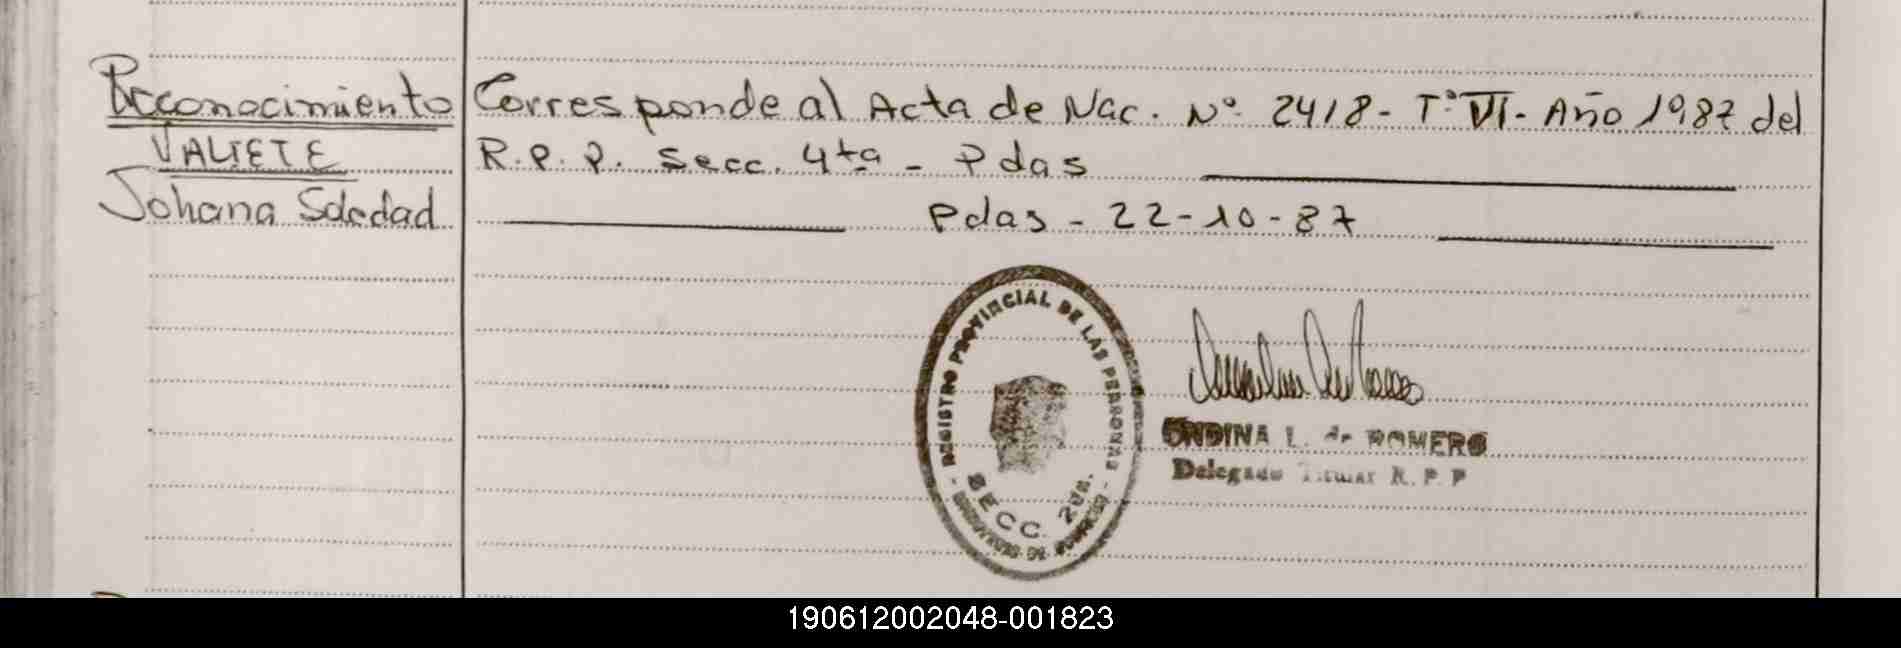 Reconocimiento
VALIETE
Johana Soledad
Corresponde al Acta de Nac. Nº 2418 - Tº VI - Año 1987 del
R.P.P. Secc. 4ta - Pdas
Pdas - 22-10-87
REGISTRO PROVINCIAL DE LAS PERSONAS
SECC. 2da.
ONDINA L. de ROMERO
Delegado Titular R. P. P
190612002048-001823